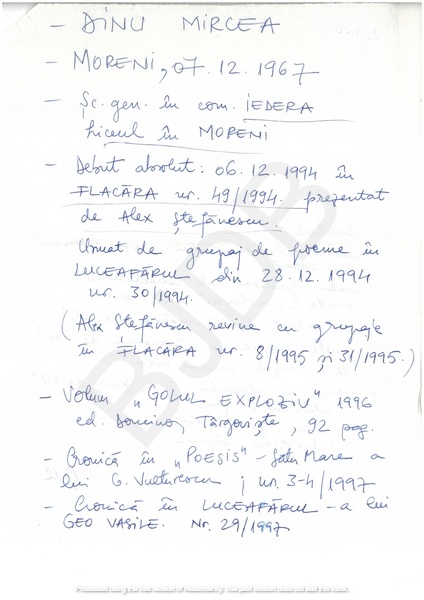 - DINU MIRCEA
- MORENI, 07.12.1967
- Șc. gen. în com. IEDERA
liceul în MORENI
- Debut absolut: 06.12.1994 în
FLACĂRA nr. 49/1994. prezentat
de Alex Ștefănescu.
Urmat de grupaj de poeme în
LUCEAFĂRUL din 28.12.1994
nr. 30/1994.
(Alex Ștefănescu revine cu grupaje
în FLACĂRA nr. 8/1995 și 31/1995.)
- Volum „GOLUL EXPLOZIV" 1996
ed. Domino, Târgoviște, 92 pag.
- Cronică în „POESIS" - Satu Mare a
lui G. Vulturescu; nr. 3-4/1997
- Cronică în LUCEAFĂRUL - a lui
GEO VASILE. Nr. 29/1997
BJDB